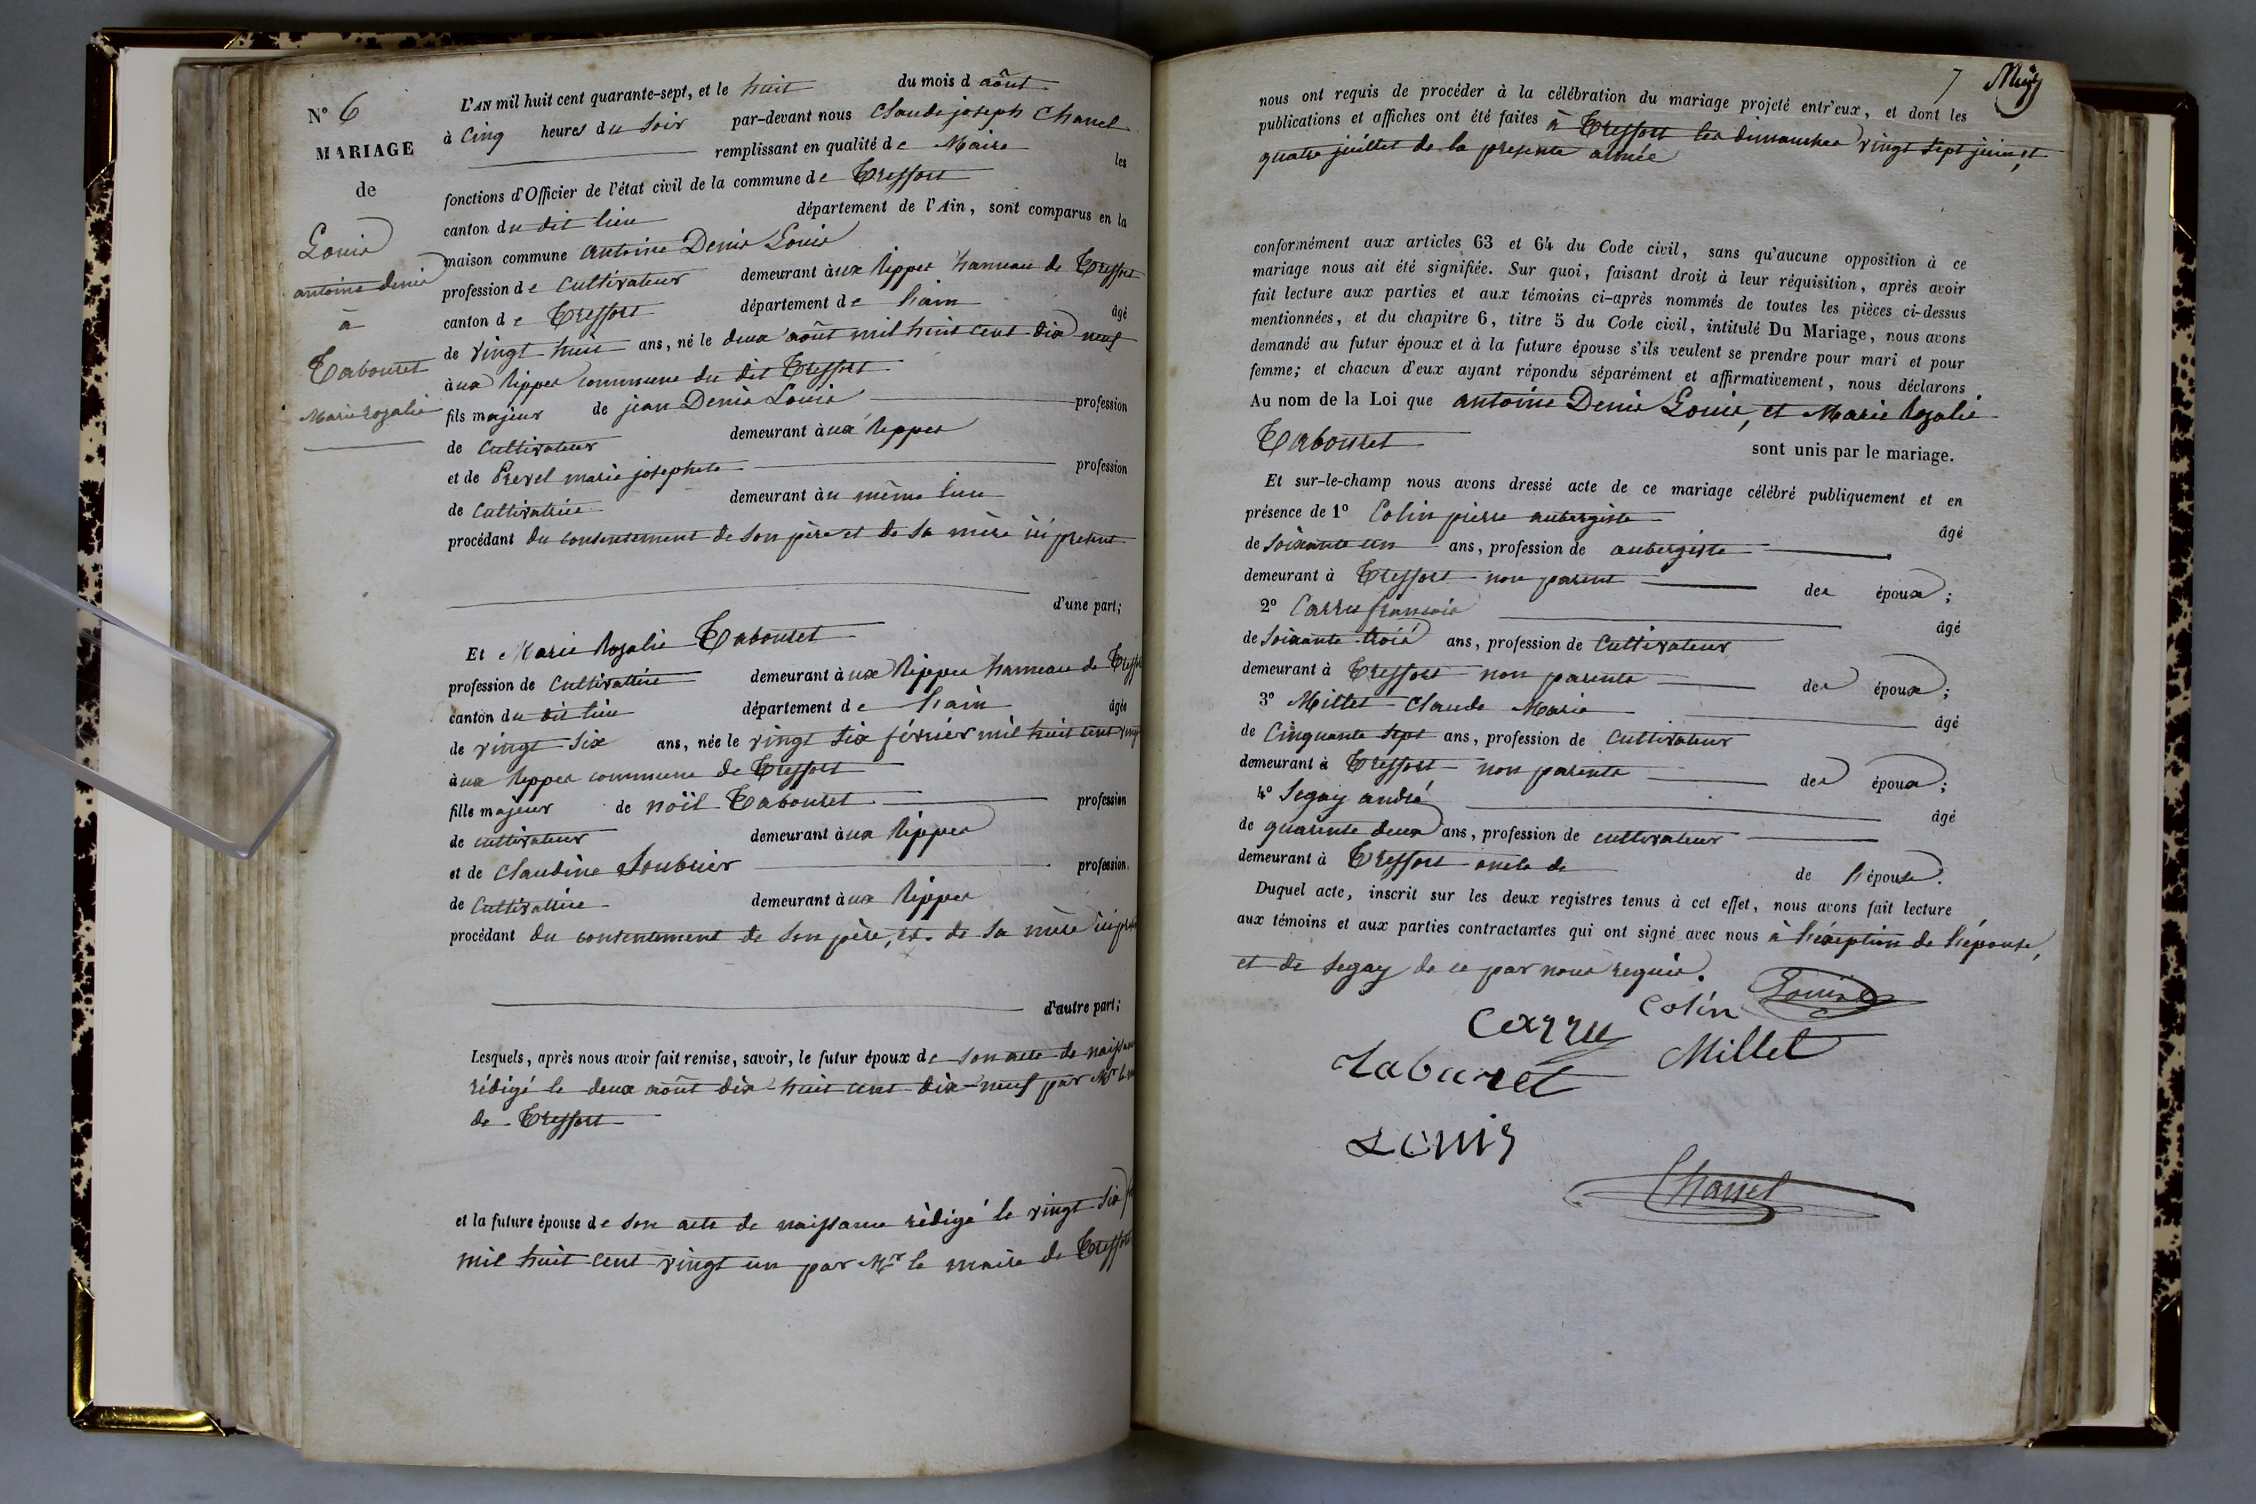 N° 6
MARIAGE
de
Louis
antoine denis
à
Tabouret
Marie Rozalie
L'AN mil huit cent quarante-sept, et le huit du mois d août
à Cinq heures du Soir par-devant nous Claude joseph Chanel
remplissant en qualité de Maire les
fonctions d'Officier de l'état civil de la commune de Treffort
canton du dit lieu département de l'Ain, sont comparus en la
maison commune antoine Denis Louis
profession de Cultivateur demeurant àux Rippes hameau de Treffort
canton de Treffort département de l'ain âgé
de vingt huit ans, né le deux août mil huit cent dix neuf
àux Rippes commune du dit Treffort
fils majeur de jean Denis Louis profession
de Cultivateur demeurant àux Rippes
et de Prevel marie josephete profession
de Cultivatrice demeurant àu même lieu
procédant du consentement de son père et de sa mère ici present
d'une part;
Et Marie Rozalie Tabouret
profession de Cultivatrice demeurant àux Rippes hameau de Treffort
canton du dit lieu département de l'ain âgée
de vingt Six ans, née le vingt six février mil huit cent vingt
àux Rippes commune de Treffort
fille majeur de noël Tabouret profession
de cultivateur demeurant àux Rippes
et de Claudine Soubrier profession
de Cultivatrice demeurant àux Rippes
procédant du consentement de Son père, et de Sa mère ici
d'autre part;
Lesquels, après nous avoir fait remise, savoir, le futur époux de son acte de naissance
rédigé le deux août dix-huit cent dix-neuf par Mr
de Treffort
et la future épouse de son acte de naissance rédigé le vingt Six
mil huit cent vingt un par Mr le maire de Treffort
7
nous ont requis de procéder à la célébration du mariage projeté entr'eux, et dont les
publications et affiches ont été faites à Treffort les dimanches vingt sept juin, et
quatre juillet de la presente année
conformément aux articles 63 et 64 du Code civil, sans qu'aucune opposition à ce
mariage nous ait été signifiée. Sur quoi, faisant droit à leur réquisition, après avoir
fait lecture aux parties et aux témoins ci-après nommés de toutes les pièces ci-dessus
mentionnées, et du chapitre 6, titre 5 du Code civil, intitulé Du Mariage, nous avons
demandé au futur époux et à la future épouse s'ils veulent se prendre pour mari et pour
femme; et chacun d'eux ayant répondu séparément et affirmativement, nous déclarons
Au nom de la Loi que antoine Denis Louis, et Marie Rozalie
Tabouret
sont unis par le mariage.
Et sur-le-champ nous avons dressé acte de ce mariage célébré publiquement et en
présence de 1° Colin pierre aubergiste âgé
de Soixante un ans, profession de aubergiste
demeurant à Treffort non parent des époux;
2° Carru françois âgé
de Soixante trois ans, profession de Cultivateur
demeurant à Treffort non parents des époux;
3° Millet Claude Marie âgé
de Cinquante Sept ans, profession de Cultivateur
demeurant à Treffort non parents des époux;
4° Segay andré âgé
de quarante deux ans, profession de cultivateur
demeurant à Treffort oncle de de l'épouse.
Duquel acte, inscrit sur les deux registres tenus à cet effet, nous avons fait lecture
aux témoins et aux parties contractantes qui ont signé avec nous à l'éxeption de l'épouse,
et de Segay de ce par nous requis.
Colin Louis
Carru
Tabouret Millet
Louis
Chanel